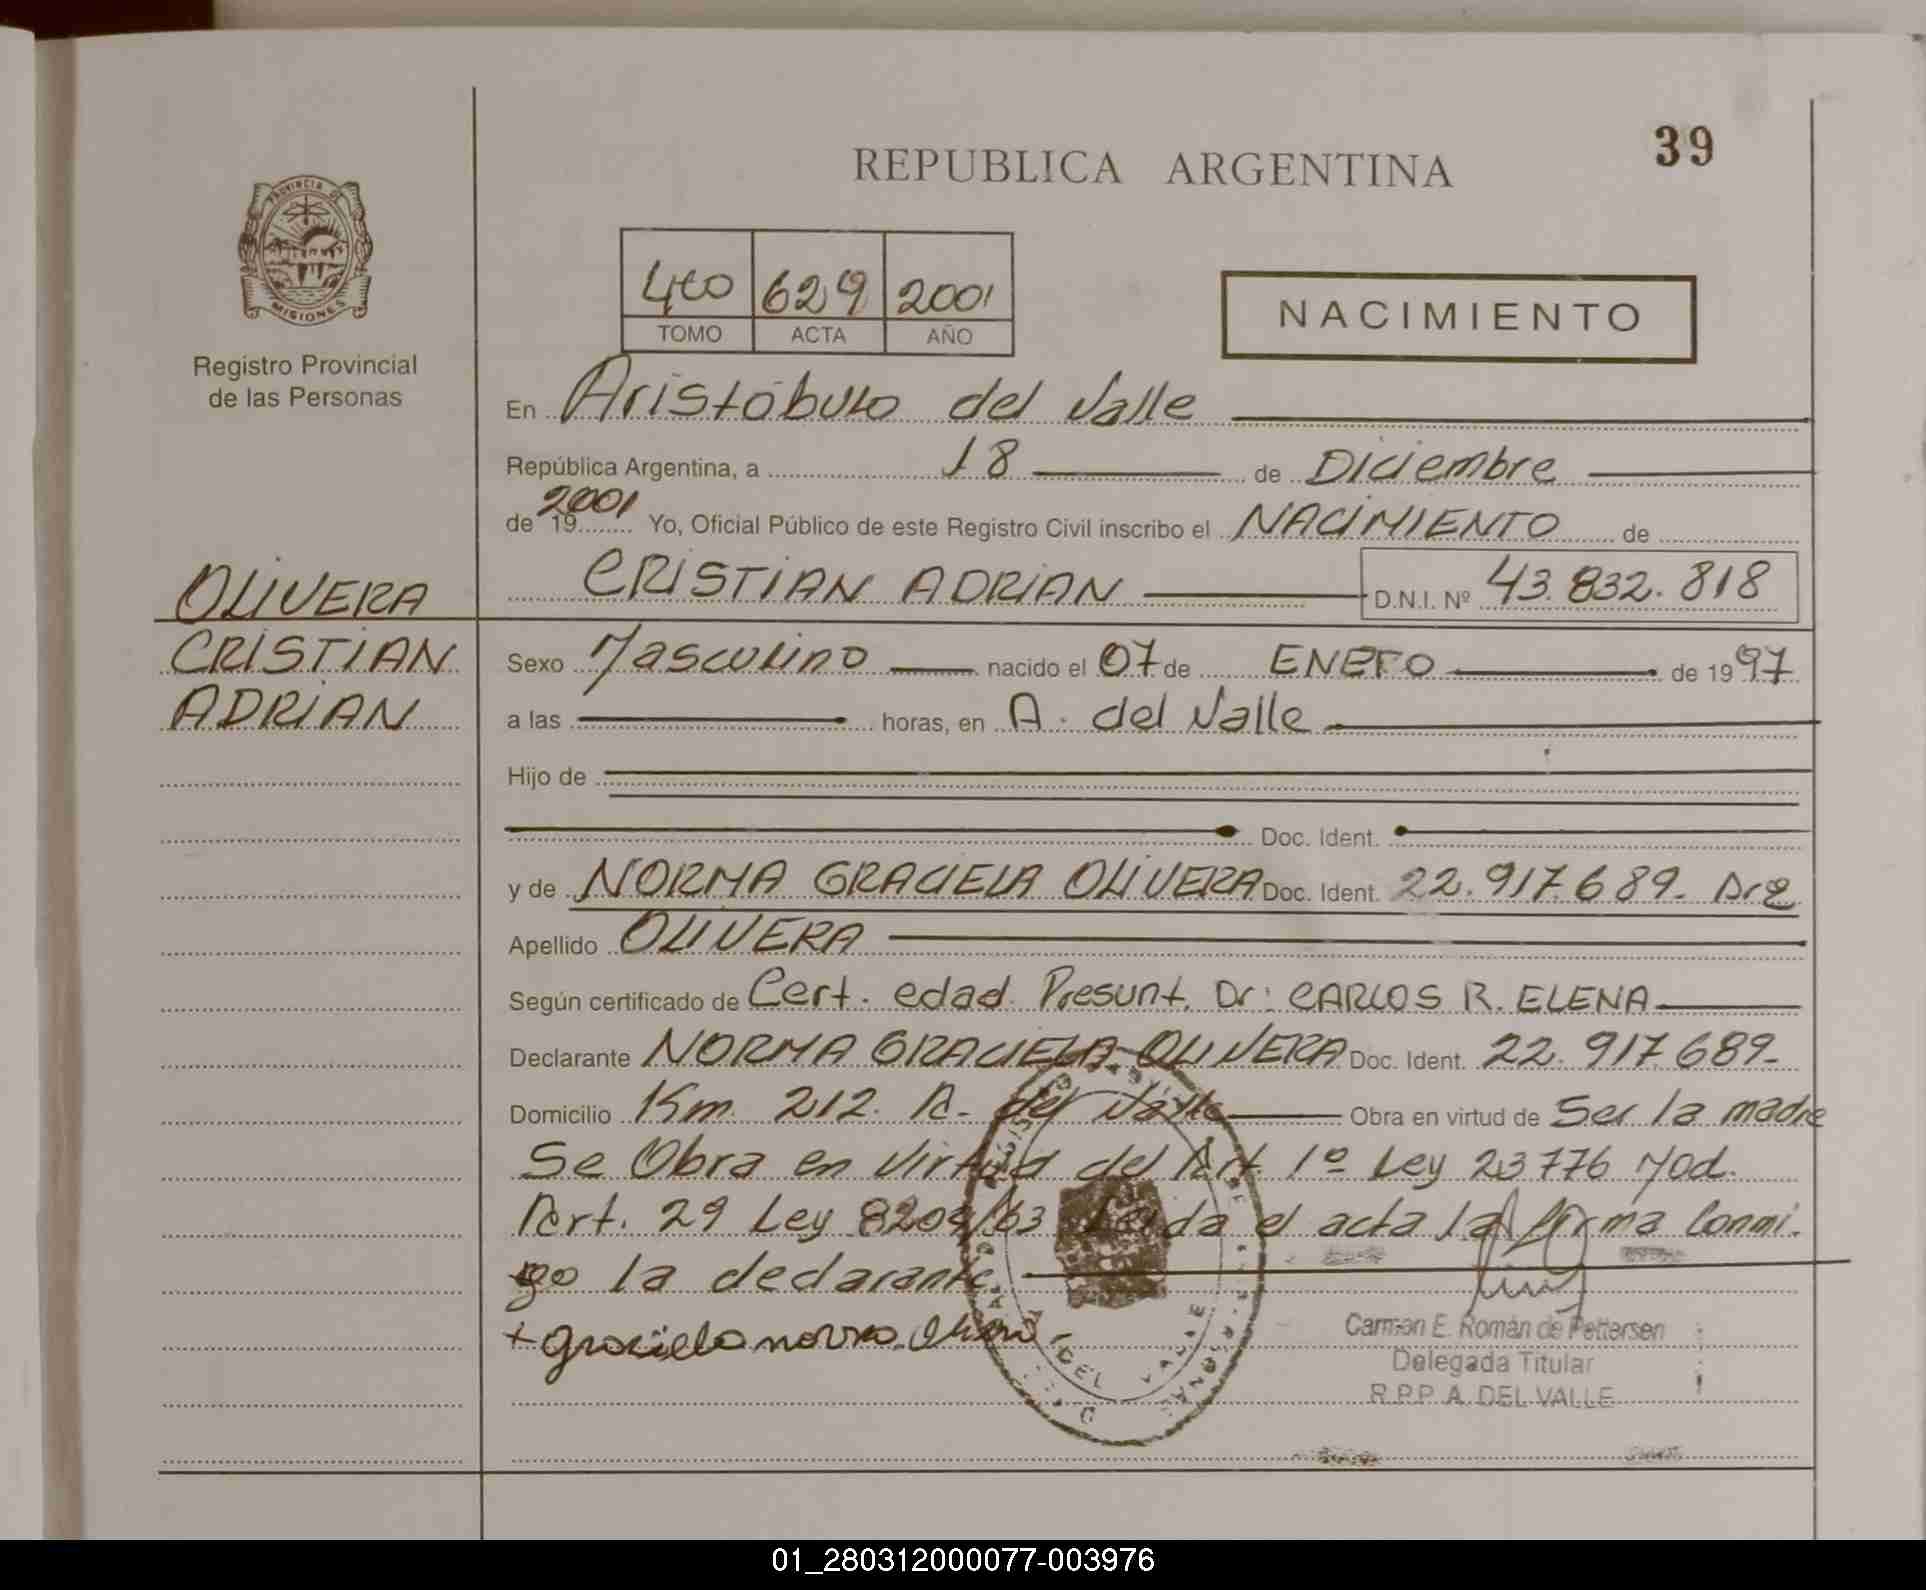 39
REPUBLICA ARGENTINA
PROVINCIA DE
MISIONES
Registro Provincial
de las Personas
4to 629 2001
TOMO ACTA AÑO
NACIMIENTO
En Aristóbulo del Valle
República Argentina, a 18 de Diciembre
de 19 2001 Yo, Oficial Público de este Registro Civil inscribo el NACIMIENTO de
CRISTIAN ADRIAN D.N.I. Nº 43.832.818
OLIVERA
CRISTIAN
ADRIAN
Sexo Masculino nacido el 07 de ENERO de 1997
a las horas, en A. del Valle
Hijo de
Doc. Ident.
y de NORMA GRACIELA OLIVERA Doc. Ident. 22.917.689. Arg
Apellido OLIVERA
Según certificado de Cert. edad Presunt. Dr: CARLOS R. ELENA
Declarante NORMA GRACIELA OLIVERA Doc. Ident. 22.917.689-
Domicilio Km. 212. A. del Valle Obra en virtud de Ser la madre
Se Obra en virtud del Art. 1º Ley 23776 Mod.
Art. 29 Ley 8204/63 Leida el acta la firma Conmi.
go la declarante
+ graciela norma Olivera
DEL VALLE
Carmen E. Román de Pettersen
Delegada Titular
R.P.P. A. DEL VALLE
01_280312000077-003976